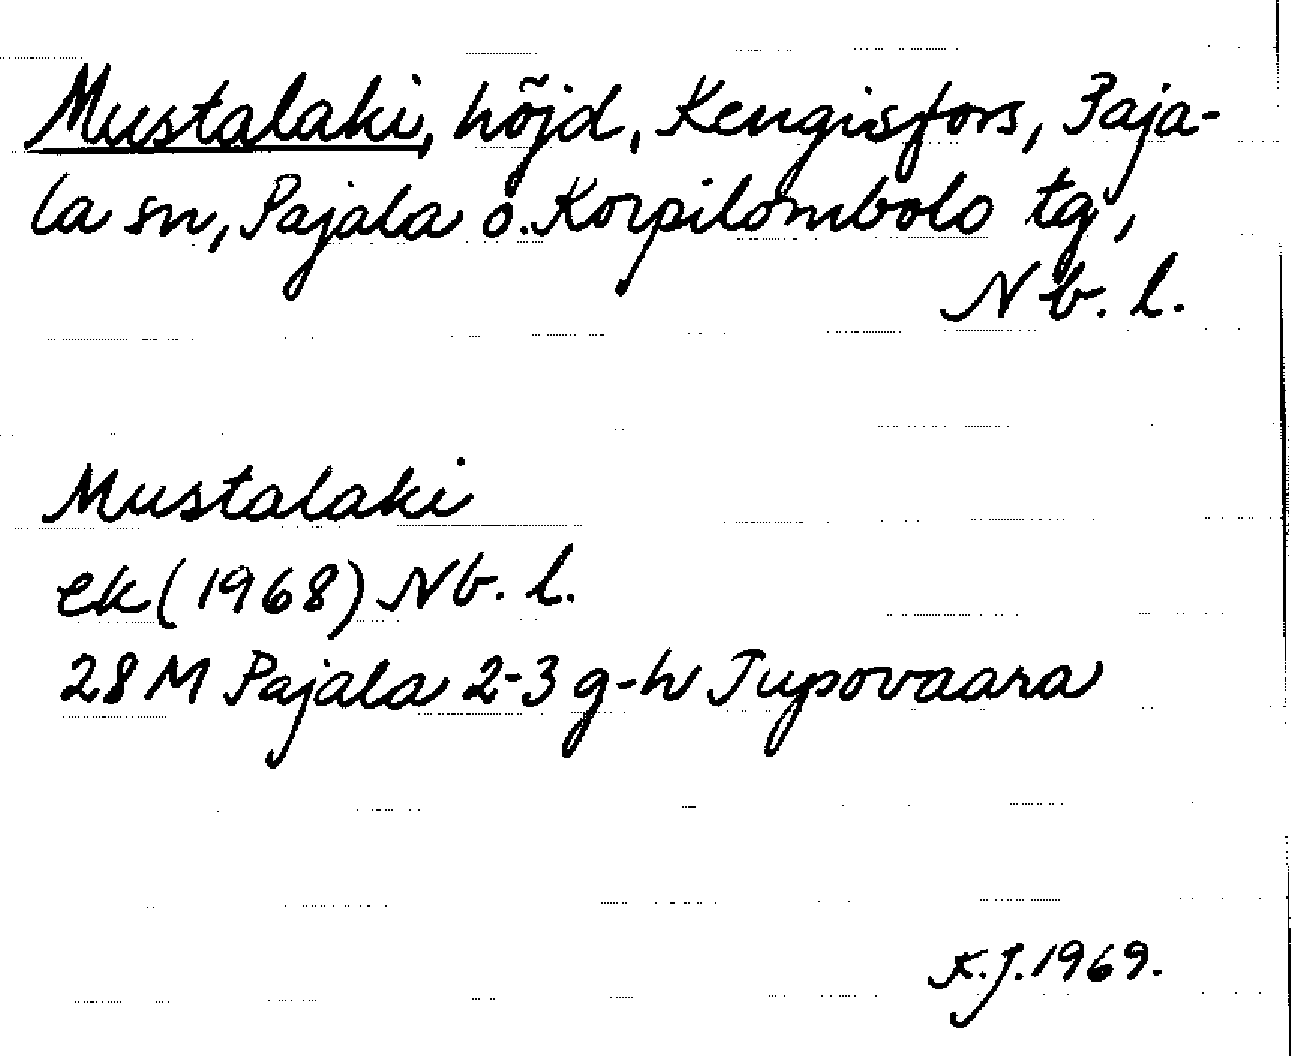 Mustalaki, höjd, Kengisfors, Paja-
la sn, Pajala o. Korpilombolo tg,
Nb. l.
Mustalaki
ek (1968) Nb. l.
28 M Pajala 2-3 g-h Jupovaara
K.J. 1969.